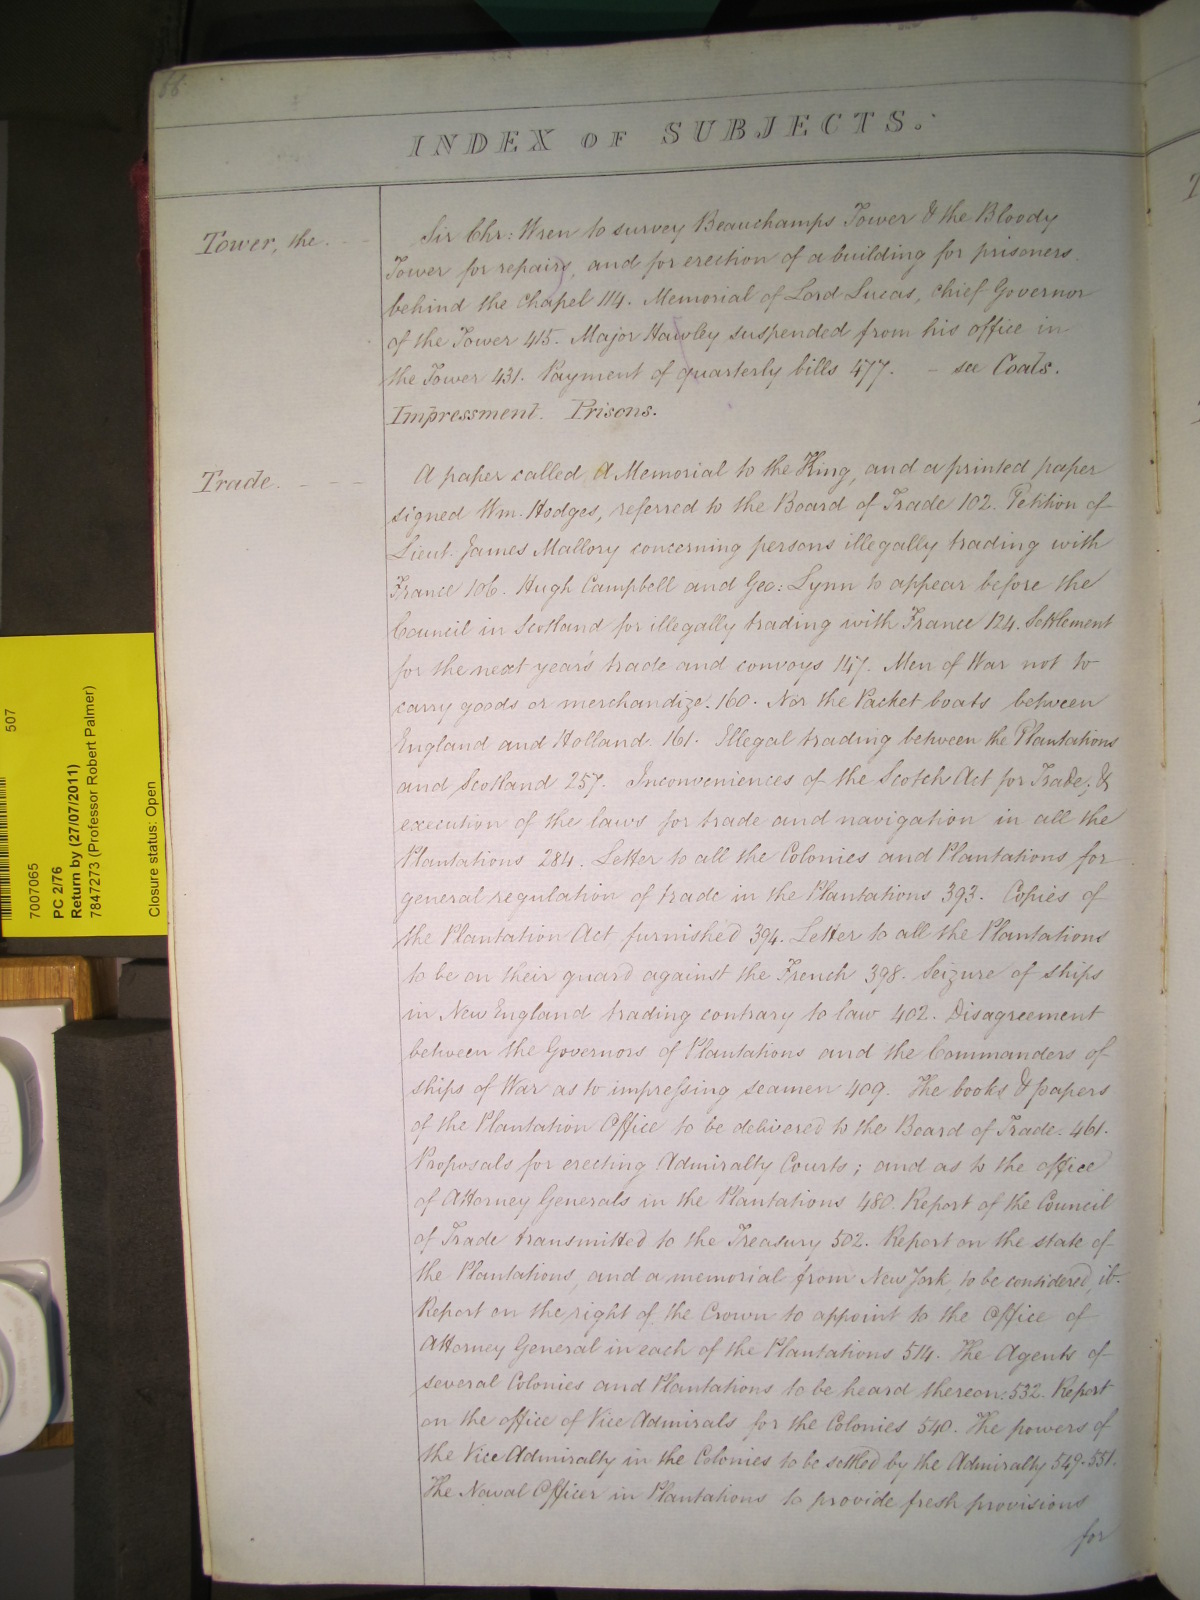 INDEX OF SUBJECTS.
Tower, the. - -
Sir Chr: Wren to survey Beauchamps Tower & the Bloody
Tower for repairs, and for erection of a building for prisoners
behind the chapel 114. Memorial of Lord Lucas, chief Governor
of the Tower 415. Major Hawley suspended from his office in
the Tower 431. Payment of quarterly bills 477. - see Coals.
Impressment. Prisons.
Trade. - - -
A paper called A Memorial to the King, and a printed paper
signed Wm. Hodges, referred to the Board of Trade 102. Petition of
Lieut. James Mallory concerning persons illegally trading with
France 106. Hugh Campbell and Geo: Lynn to appear before the
Council in Scotland for illegally trading with France 124. Settlement
for the next year's trade and convoys 147. Men of War not to
carry goods or merchandize. 160. Nor the Packet boats between
England and Holland. 161. Illegal trading between the Plantations
and Scotland 257. Inconveniences of the Scotch Act for Trade; &
execution of the laws for trade and navigation in all the
Plantations 284. Letter to all the Colonies and Plantations for
general regulation of trade in the Plantations 393. Copies of
the Plantation Act furnished 394. Letter to all the Plantations
to be on their guard against the French 398. Seizure of ships
in New England trading contrary to law 402. Disagreement
between the Governors of Plantations and the Commanders of
ships of War as to impressing seamen 409. The books & papers
of the Plantation Office to be delivered to the Board of Trade. 461.
Proposals for erecting Admiralty Courts; and as to the office
of Attorney Generals in the Plantations 480. Report of the Council
of Trade transmitted to the Treasury 502. Report on the state of
the Plantations, and a memorial from New York, to be considered, ib.
Report on the right of the Crown to appoint to the office of
Attorney General in each of the Plantations 514. The Agents of
several Colonies and Plantations to be heard thereon. 532. Report
on the office of Vice Admirals for the Colonies 540. The powers of
the Vice Admiralty in the Colonies to be settled by the Admiralty 549. 551.
The Naval Officer in Plantations to provide fresh provisions
for
507
7007065
PC 2/76
Return by (27/07/2011)
7847273 (Professor Robert Palmer)
Closure status: Open